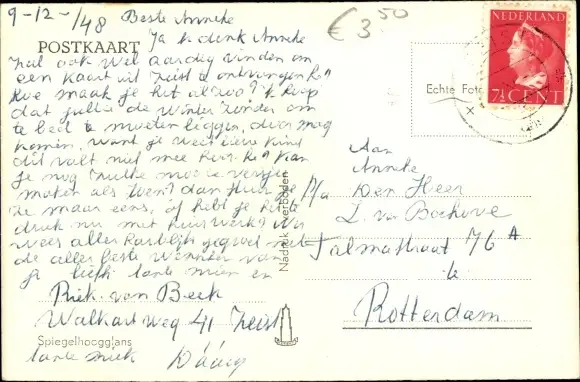 9-12-/48 Beste Anneke
€ 3.50
NEDERLAND
7½ CENT
POSTKAART
Ja ik denk Anneke
zal ook wel aardig vinden om
een kaart uit Zeist te ontvangen hè?
Hoe maak je het al zoo? Ik hoop
dat jullie de winter zonder om
te bed te moeten liggen, door mag
komen, want je weet lieve kind
dit valt niet mee hoor hè? Kan
je nog zulke mooie versjes
maken als toen? dan stuur je
ze maar eens, of heb je het te
druk nu met huiswerk? Nu
wees allen hartelijk gegroet met
de aller beste wenschen van
je liefh tante Mien en
Riek van Beek
Walkart weg 41 Zeist
tante Riek Dááág
Echte Foto
Aan
Anneke
P/a Den Heer
L. van Bochove
Talmastraat 76 A
te
Rotterdam
Nadruk verboden
Spiegelhoogglans